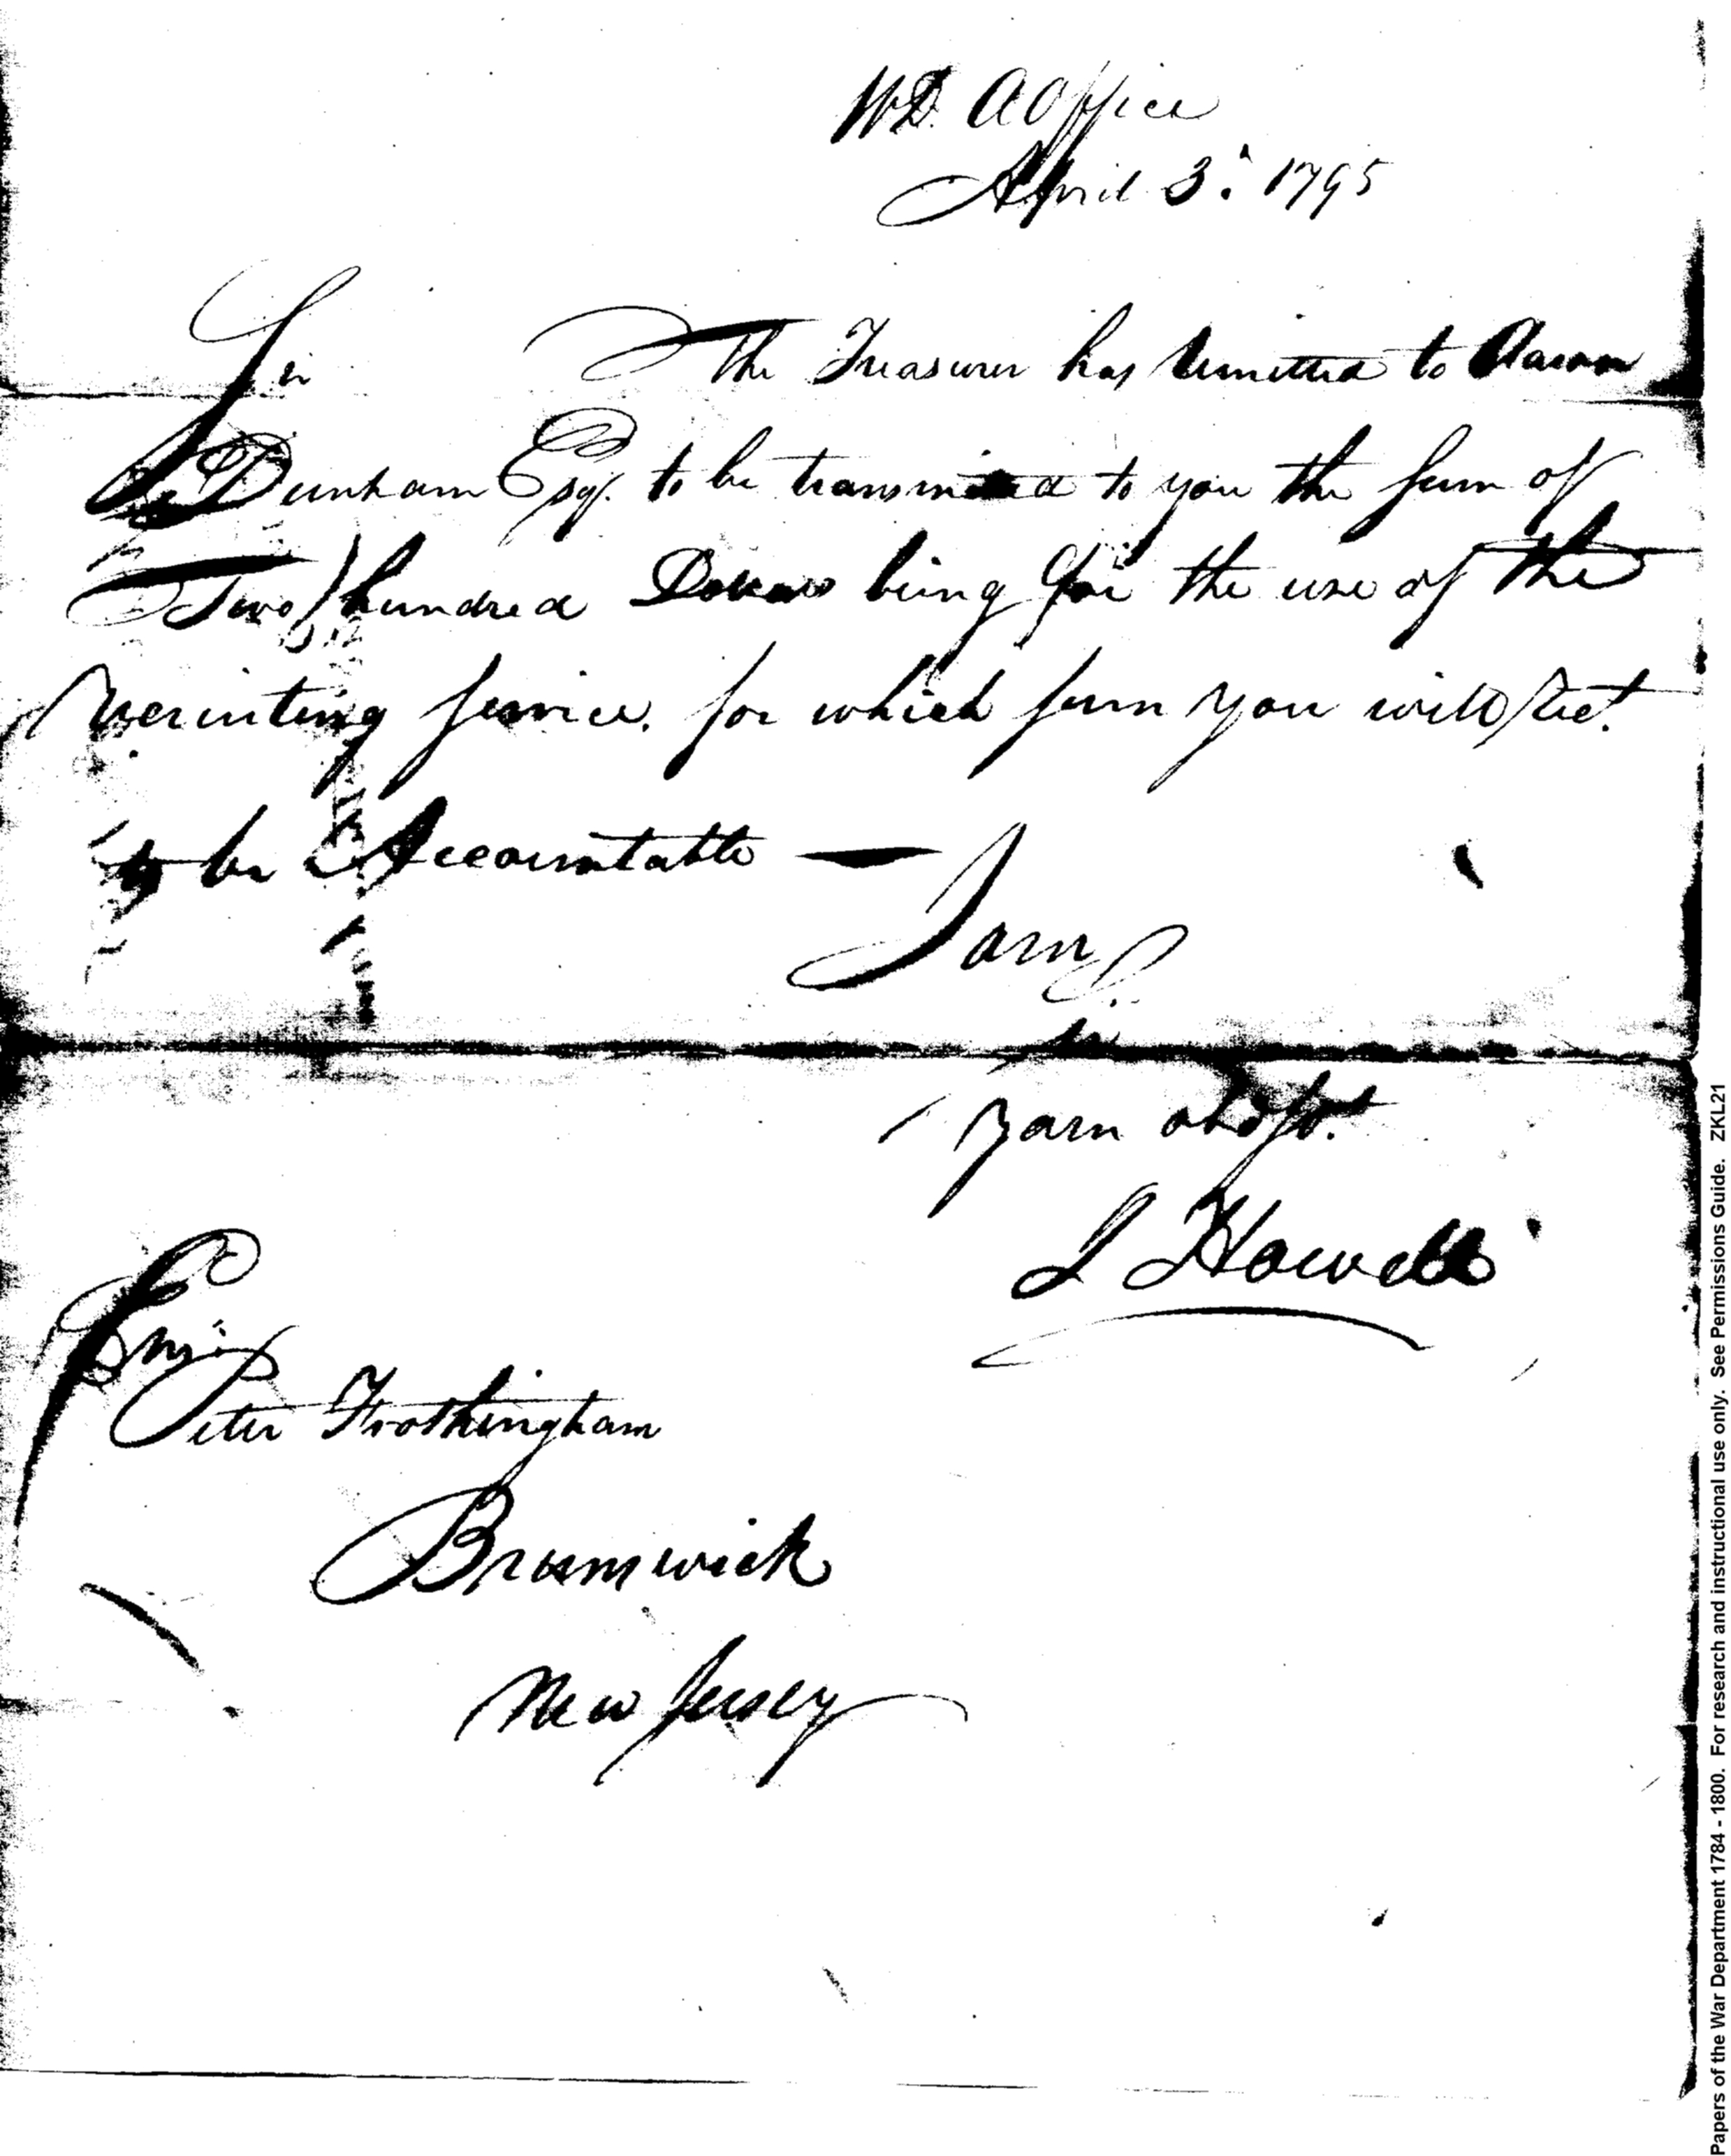 WD. A Office
April 3d. 1795
Sir The Treasurer has remitted to Aaron
Dunham Esqr. to be transmitted to you the sum of
Two hundred Dollars being for the use of the
recruiting service, for which sum you will
to be Accountable —
I am
Sir
Your obdt.
J Howell
Ensi
Peter Frothingham
Brunswick
New Jersey
Papers of the War Department 1784 - 1800. For research and instructional use only. See Permissions Guide. ZKL21